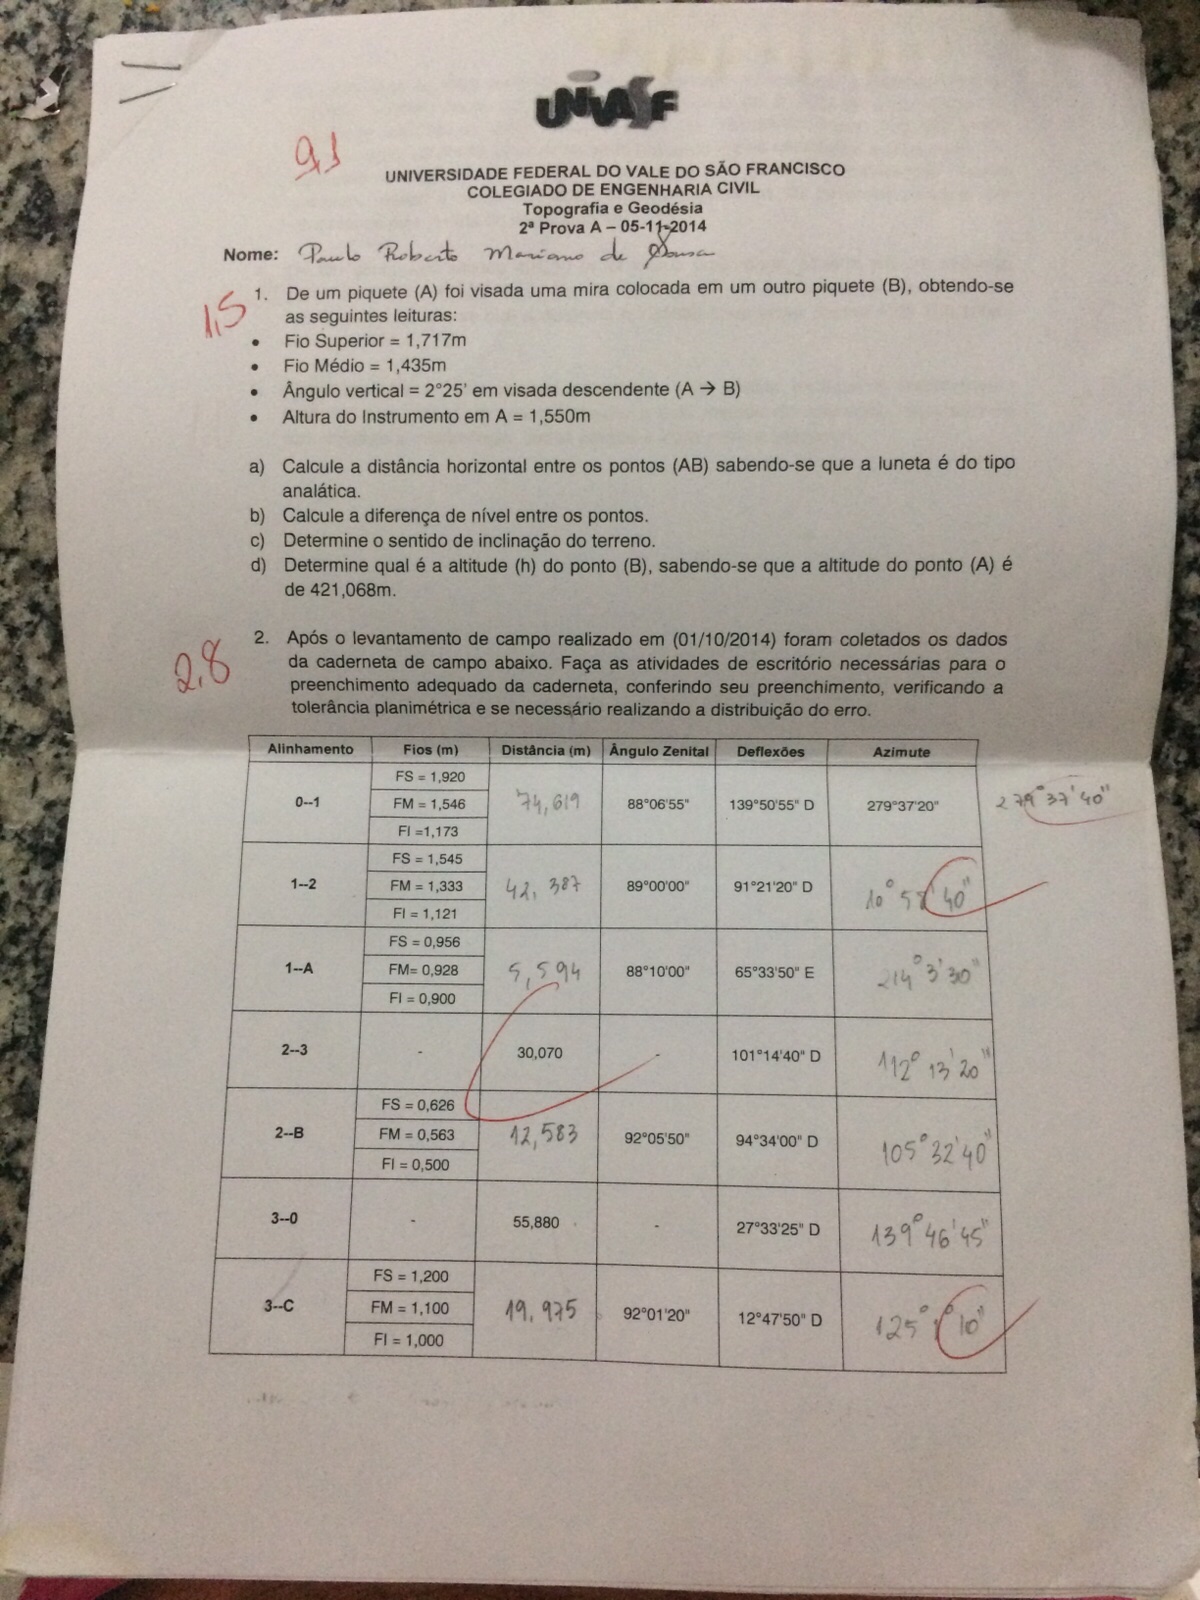 UNIVASF
9,1
UNIVERSIDADE FEDERAL DO VALE DO SÃO FRANCISCO
COLEGIADO DE ENGENHARIA CIVIL
Topografia e Geodésia
2ª Prova A – 05-11-2014
Nome: Paulo Roberto Mariano de Sousa
1,5
1. De um piquete (A) foi visada uma mira colocada em um outro piquete (B), obtendo-se
as seguintes leituras:
• Fio Superior = 1,717m
• Fio Médio = 1,435m
• Ângulo vertical = 2°25' em visada descendente (A → B)
• Altura do Instrumento em A = 1,550m
a) Calcule a distância horizontal entre os pontos (AB) sabendo-se que a luneta é do tipo
analática.
b) Calcule a diferença de nível entre os pontos.
c) Determine o sentido de inclinação do terreno.
d) Determine qual é a altitude (h) do ponto (B), sabendo-se que a altitude do ponto (A) é
de 421,068m.
2,8
2. Após o levantamento de campo realizado em (01/10/2014) foram coletados os dados
da caderneta de campo abaixo. Faça as atividades de escritório necessárias para o
preenchimento adequado da caderneta, conferindo seu preenchimento, verificando a
tolerância planimétrica e se necessário realizando a distribuição do erro.
Alinhamento Fios (m) Distância (m) Ângulo Zenital Deflexões Azimute
FS = 1,920
0--1 FM = 1,546 74,619 88°06'55" 139°50'55" D 279°37'20" 279°37'40"
FI =1,173
FS = 1,545
1--2 FM = 1,333 42,387 89°00'00" 91°21'20" D 10°58'40"
FI = 1,121
FS = 0,956
1--A FM= 0,928 5,594 88°10'00" 65°33'50" E 214°3'30"
FI = 0,900
2--3 - 30,070 - 101°14'40" D 112°13'20"
FS = 0,626
2--B FM = 0,563 12,583 92°05'50" 94°34'00" D 105°32'40"
FI = 0,500
3--0 - 55,880 - 27°33'25" D 139°46'45"
FS = 1,200
3--C FM = 1,100 19,975 92°01'20" 12°47'50" D 125° 10"
FI = 1,000